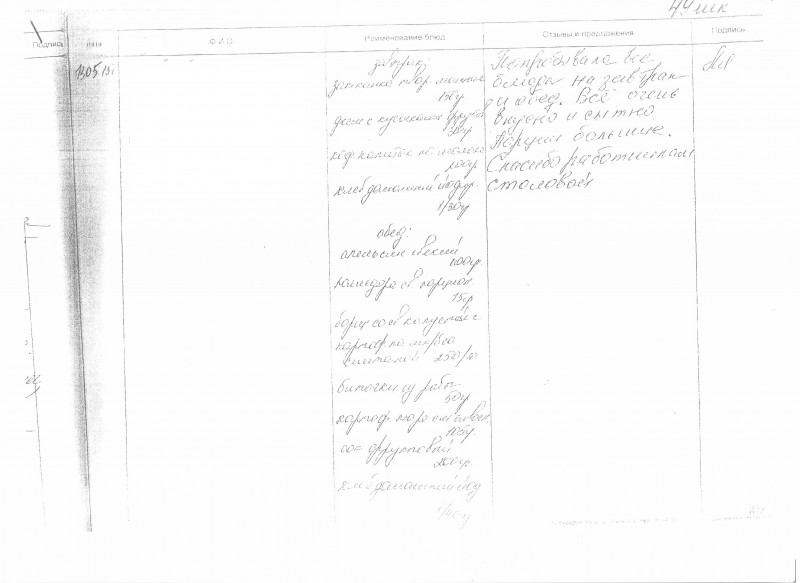 44 шк
Подпись
Дата
Ф.И.О.
Наименование блюд
Отзывы и предложения
Подпись
13.05.19г
завтрак:
запеканка твор. молочн
150гр
джем с кусочками фрукт
коф. напиток на молоке
200гр
хлеб домашний йодир.
1/30гр
обед:
апельсин свежий
100гр.
помидора св. порцион
15гр
борщ со св капустой с
картоф на мясо
сметаной 250/10
биточки из рыбы
50гр
картоф. пюре
сок фруктовый
200гр.
хлеб домашний йод
1/40гр
Попробывала все
блюда на завтрак
и обед. Всё очень
вкусно и сытно
Порции большие.
Спасибо работникам
столовой